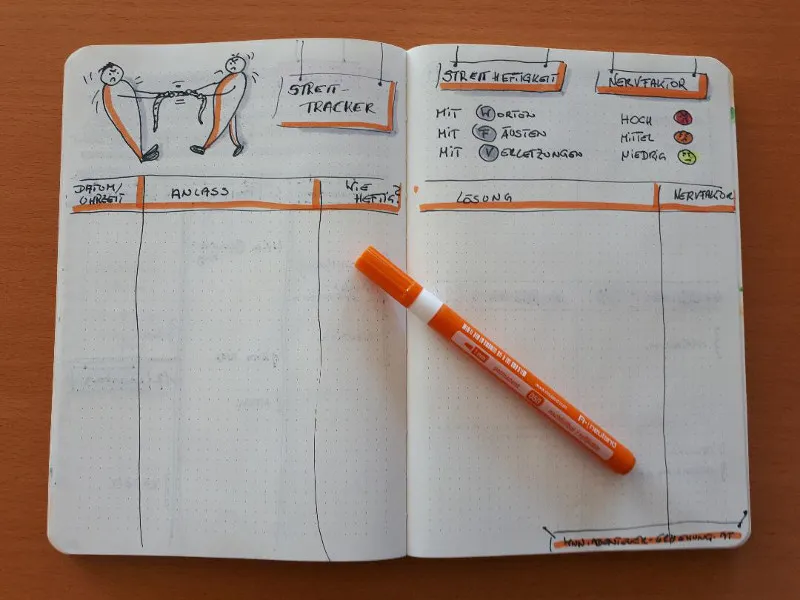 STREIT-
TRACKER
DATUM/
UHRZEIT
ANLASS
WIE
HEFTIG?
STREITHEFTIGKEIT
MIT WORTEN
MIT FÄUSTEN
MIT VERLETZUNGEN
NERVFAKTOR
HOCH
MITTEL
NIEDRIG
LÖSUNG
NERVFAKTOR
WWW.ABENTEUER-ERZIEHUNG.AT